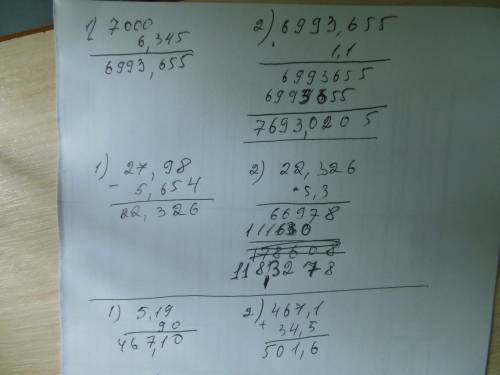 1) 7000
6,345
6993,655
2) 6993,655
1,1
6993655
6993655
7693,0205
1) 27,98
- 5,654
22,326
2) 22,326
5,3
66978
111630
118,3278
1) 5,19
90
467,10
2) 467,1
+ 34,5
501,6